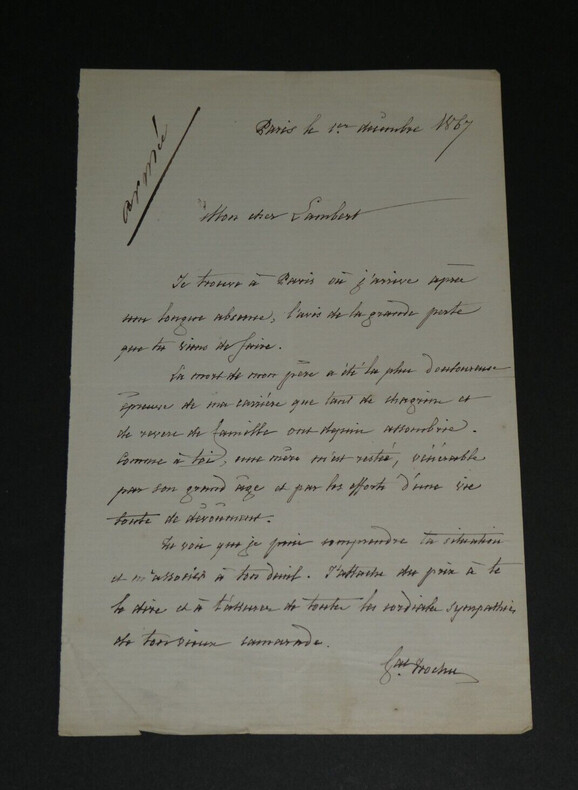 armée
Paris le 1er décembre 1867
Mon cher Lambert
Je trouve à Paris où j'arrive après
une longue absence, l'avis de la grande perte
que tu viens de faire.
La mort de mon père a été la plus douloureuse
épreuve de ma carrière que tant de chagrins et
de revers de famille ont depuis assombrie.
Comme à toi, une mère m'est restée, vénérable
par son grand âge et par les efforts d'une vie
toute de dévoûment.
Tu vois que je puis comprendre ta situation
et m'associer à ton deuil. J'attache du prix à te
le dire et à t'assurer de toutes les cordiales sympathies
de ton vieux camarade.
Gal Trochu